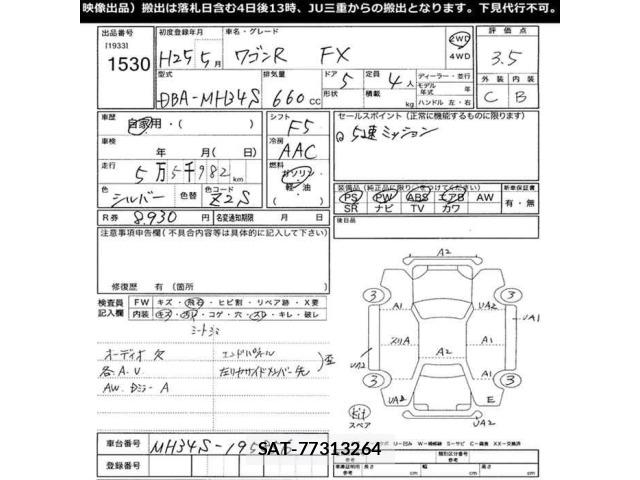 映像出品）搬出は落札日含む4日後13時、JU三重からの搬出となります。下見代行不可。
出品番号
[1933]
1530
初度登録年月
H25 5月
車名・グレード
ワゴンR FX
2WD
4WD
評価点
3.5
型式
DBA-MH34S
排気量
660 CC
ドア
形状
5
定員
積載
4人
kg
ディーラー・並行
モデル
年式 年
ハンドル 左・右
外装 内装
C B
車歴
自家用・( )
シフト
F5
セールスポイント（正常に機能するものに限ります）
5速ミッション
車検
年 月( 日)
冷房
AAC
走行
5万5千982 km
燃料
ガソリン
軽・油
色
シルバー
色替
色コード
Z2S
装備品（純正品に限り○をつけてください）
PS PW ABS エアB AW
SR ナビ TV カワ
新車保証書
有・無
R券
8,930 円
名変通知期限 月 日
後日品
注意事項申告欄（不具合内容等は具体的に記入して下さい）
修復歴 有（箇所 ）
検査員
記入欄
FW キズ・飛石・ヒビ割・リペア跡・X要
内装 キズ・汚レ・コゲ・穴・スレ・キレ・破レ
シートシミ
オーディオ欠
各A.V
AW.Dミラー A
エンドパネル
左リヤサイドメンバー先
A2
3
A1
UA2
3
UA1
スリA
A2
A1
UA2
3
A1
3
UA2
E
キット
スペア
UA2
車台番号
MH34S-195
SAT-77313264
登録番号
類別区分番号
参考
車庫証明用
参考
長さ cm
幅 cm
高さ cm